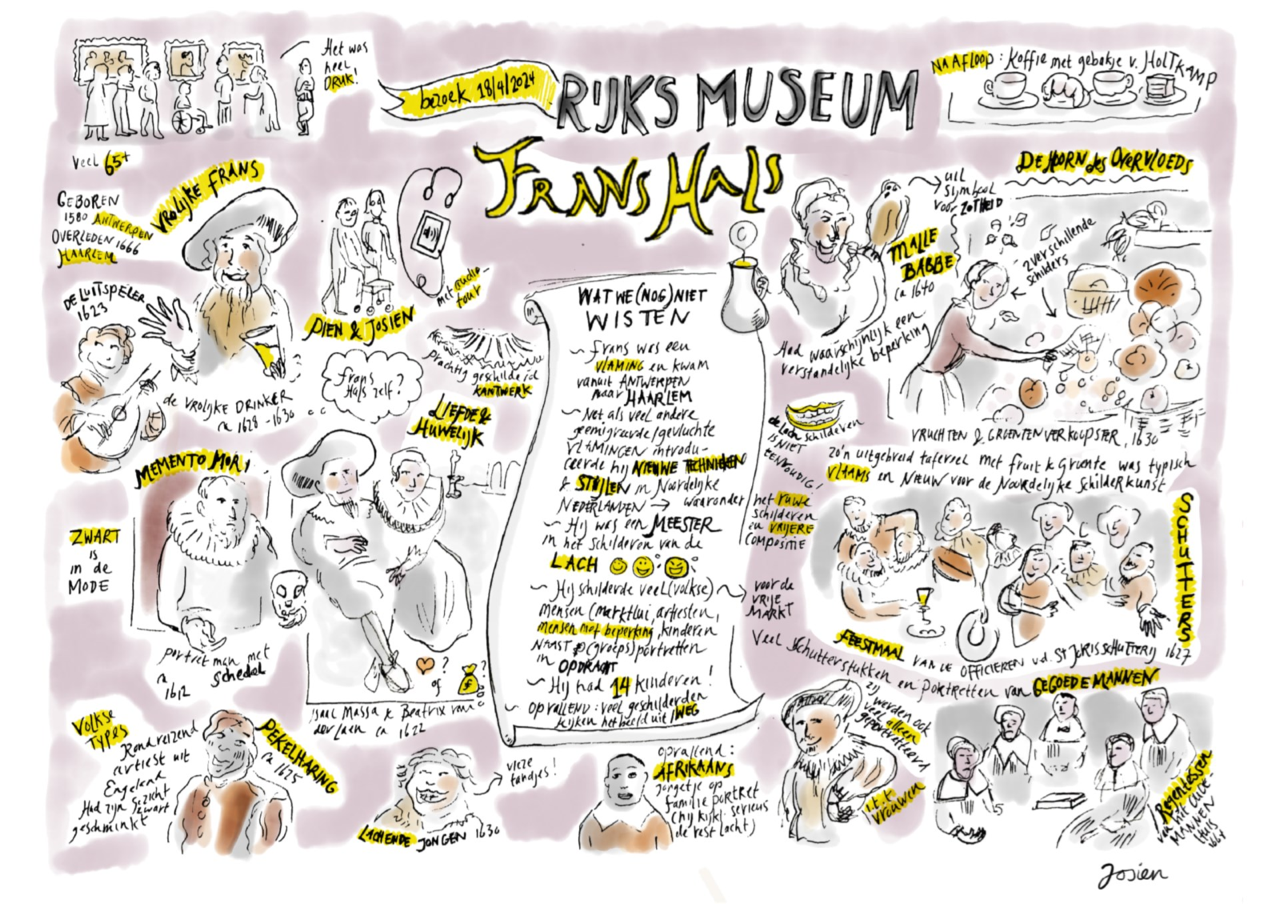 Het was
heel
DRUK!
veel 65+
bezoek 18/4/2024
RIJKS MUSEUM
FRANS HALS
NA AFLOOP: Koffie met gebakje v. HOLTKAMP
GEBOREN
1580 ANTWERPEN
OVERLEDEN 1666
HAARLEM
VROLIJKE FRANS
DE LUITSPELER
1623
de VROLIJKE DRINKER
ca 1628-1630
DIEN & JOSIEN
met audio
tour
Frans
Hals zelf?
prachtig geschilderd
KANTWERK
LIEFDE &
HUWELIJK
MEMENTO MORI
ZWART
is
in de
MODE
portret man met
schedel
ca
1612
? of ?
Isaac Massa & Beatrix van
der Laen ca 1622
WAT WE (NOG) NIET
WISTEN
~ Frans was een
VLAMING en kwam
vanuit ANTWERPEN
naar HAARLEM
~ Net als veel andere
geemigreerde/gevluchte
VLAMINGEN introdu-
ceerde hij NIEUWE TECHNIEKEN
& STIJLEN in Noordelijke
NEDERLANDEN → waaronder
het ruwe
schilderen
en VRIJERE
COMPOSITIE
~ Hij was een MEESTER
in het schilderen van de
LACH
~ Hij schilderde veel (volkse)
mensen (marktlui, artiesten,
mensen met beperking, kinderen
NAAST (groeps)portretten
in OPDRACHT
voor de
VRIJE
MARKT
~ Hij had 14 kinderen!
~ OPVALLEND: veel geschilderden
kijken het beeld uit/WEG
uil
symbool
voor ZOTHEID
MALLE
BABBE
ca 1640
Had waarschijnlijk een
verstandelijke beperking
de lach schilderen
IS NIET
EENVOUDIG!
DE HOORN des OVERVLOEDS
2 verschillende
schilders
VRUCHTEN & GROENTENVERKOOPSTER, 1630
zo'n uitgebreid tafereel met fruit & groente was typisch
VLAAMS en NIEUW voor de Noordelijke Schilderkunst
SCHUTTERS
FEESTMAAL VAN DE OFFICIEREN v.d. ST JORISSCHUTTERIJ 1627
Veel schuttersstukken en PORTRETTEN van GEGOEDE MANNEN
zij
werden ook
vaak alleen
geportretteerd
i.t.t.
vrouwen
Regentessen
van het oude
MANNEN
HUIS
1664
VOLKSE
TYPES
Rondreizend
artiest uit
Engeland
Had zijn gezicht zwart
geschminkt
PEKELHARING
ca 1625
vieze
tandjes!
LACHENDE JONGEN 1630
opvallend:
AFRIKAANS
jongetje op
familie portret
(hij kijkt serieus
de rest lacht)
Josien